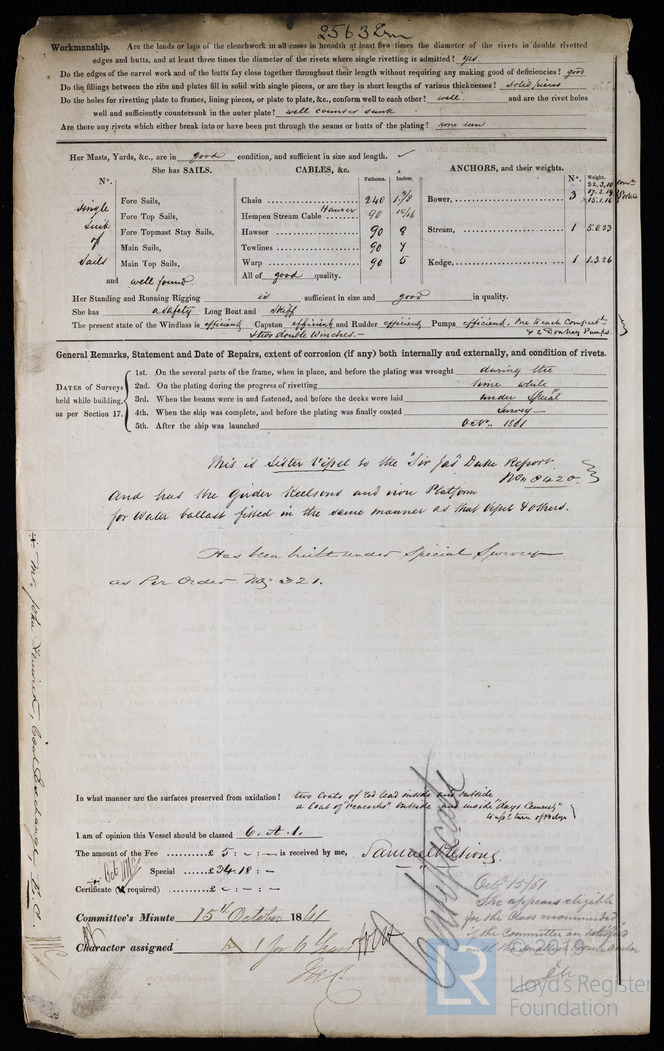 2563 Irn
Workmanship. Are the lands or laps of the clenchwork in all cases in breadth at least five times the diameter of the rivets in double rivetted
edges and butts, and at least three times the diameter of the rivets where single rivetting is admitted? yes
Do the edges of the carvel work and of the butts fay close together throughout their length without requiring any making good of deficiencies? good
Do the fillings between the ribs and plates fill in solid with single pieces, or are they in short lengths of various thicknesses? solid pieces
Do the holes for rivetting plate to frames, lining pieces, or plate to plate, &c., conform well to each other? well. and are the rivet holes
well and sufficiently countersunk in the outer plate? well counter sunk
Are there any rivets which either break into or have been put through the seams or butts of the plating? none seen
Her Masts, Yards, &c., are in good condition, and sufficient in size and length.
She has SAILS. CABLES, &c. ANCHORS, and their weights.
No. Fathoms. Inches. No. Weight.
Single Suit of Sails
Fore Sails, Chain 240 Bower, 3 22,3,10
17.2.14
15.1.16
Fore Top Sails, Hempen Stream Cable Hawser 90 15/16
Fore Topmast Stay Sails, Hawser 90 8 Stream, 1 5.0.23
Main Sails, Towlines 90 7
Main Top Sails, Warp 90 5 Kedge, 1 1.3.26
and well found. All of good quality.
Her Standing and Running Rigging is sufficient in size and good in quality.
She has a safety Long Boat and Skiff
The present state of the Windlass is efficient Capstan efficient and Rudder efficient Pumps efficient. One to each Compartt
& two double Winches.— & 2 Donkey Pumps.
General Remarks, Statement and Date of Repairs, extent of corrosion (if any) both internally and externally, and condition of rivets.
DATES of Surveys held while building, as per Section 17.
1st. On the several parts of the frame, when in place, and before the plating was wrought during the
2nd. On the plating during the progress of rivetting time while
3rd. When the beams were in and fastened, and before the decks were laid under Special
4th. When the ship was complete, and before the plating was finally coated Survey—
5th. After the ship was launched Octr. 1861
This is Sister Vessel to the "Sir Jas" Duke Report
No. 8420.
And has the Girder Keelsons and iron Platform
for Water ballast fitted in the same manner as that Vessel & others.
Has been built under Special Survey
as Per Order No. 321.
Mr. John Fenwick, Coal Exchange, E.C.
In what manner are the surfaces preserved from oxidation? two Coats of red lead inside and outside
a Coat of "Peacocks" outside and inside "days Cement"
to upr. turn of bilge
I am of opinion this Vessel should be classed 6. A. 1.
The amount of the Fee £ 5 : - : - is received by me,
Special £ 34.18 : -
Certificate (if required) £ - : - : -
Committee's Minute 15th October 1861
Character assigned A 1 for 6 Years
Octr 15/61
She appears eligible
for the Class recommended
if the Committee are satisfied
© 2019
LR
Lloyd's Register
Foundation